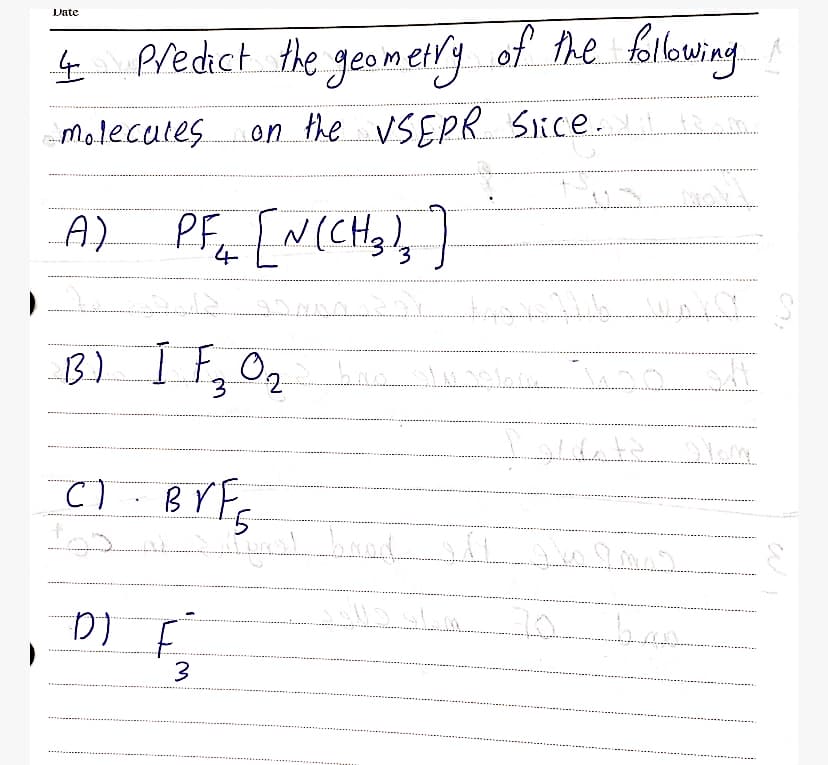 Date
4 Predict the geometry of the following
molecules on the VSEPR Slice.
A) PF₄ [N(CH₃)₃]
B) I F₃ O₂
C) . BrF₅
D) F₃⁻